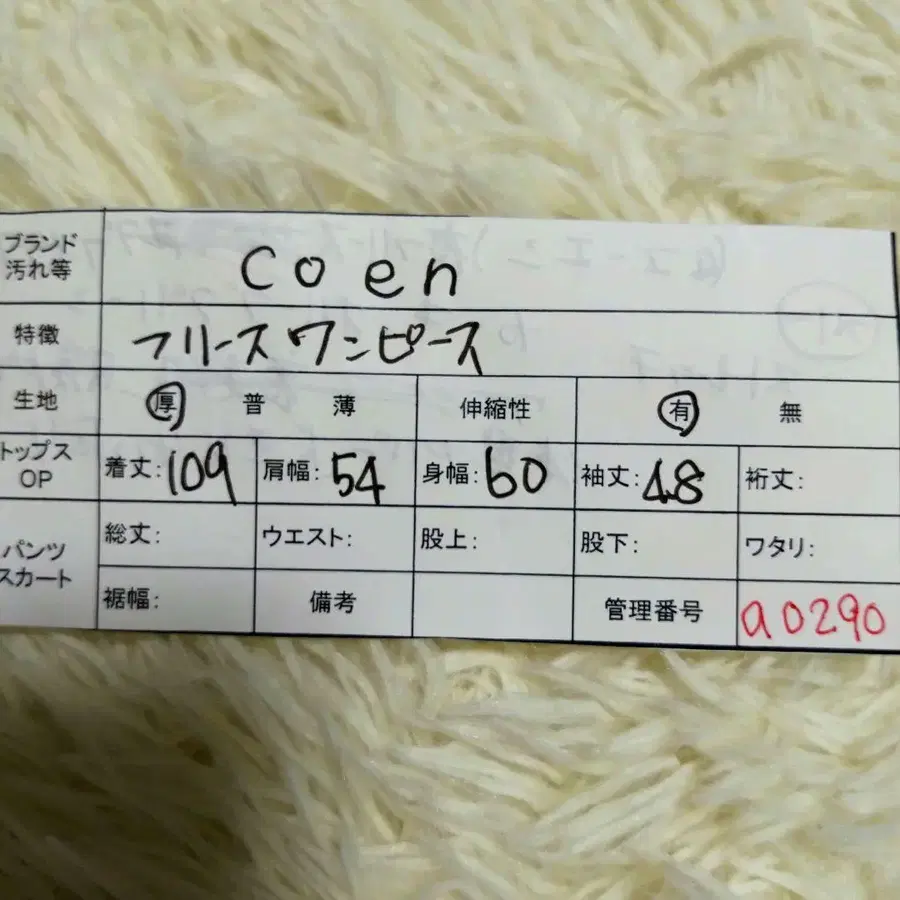 ブランド
汚れ等
coen
特徴
フリースワンピース
生地
厚 普 薄 伸縮性 有 無
トップス
OP
着丈:109 肩幅:54 身幅:60 袖丈:48 裄丈:
パンツ
スカート
総丈: ウエスト: 股上: 股下: ワタリ:
裾幅: 備考 管理番号 a0290